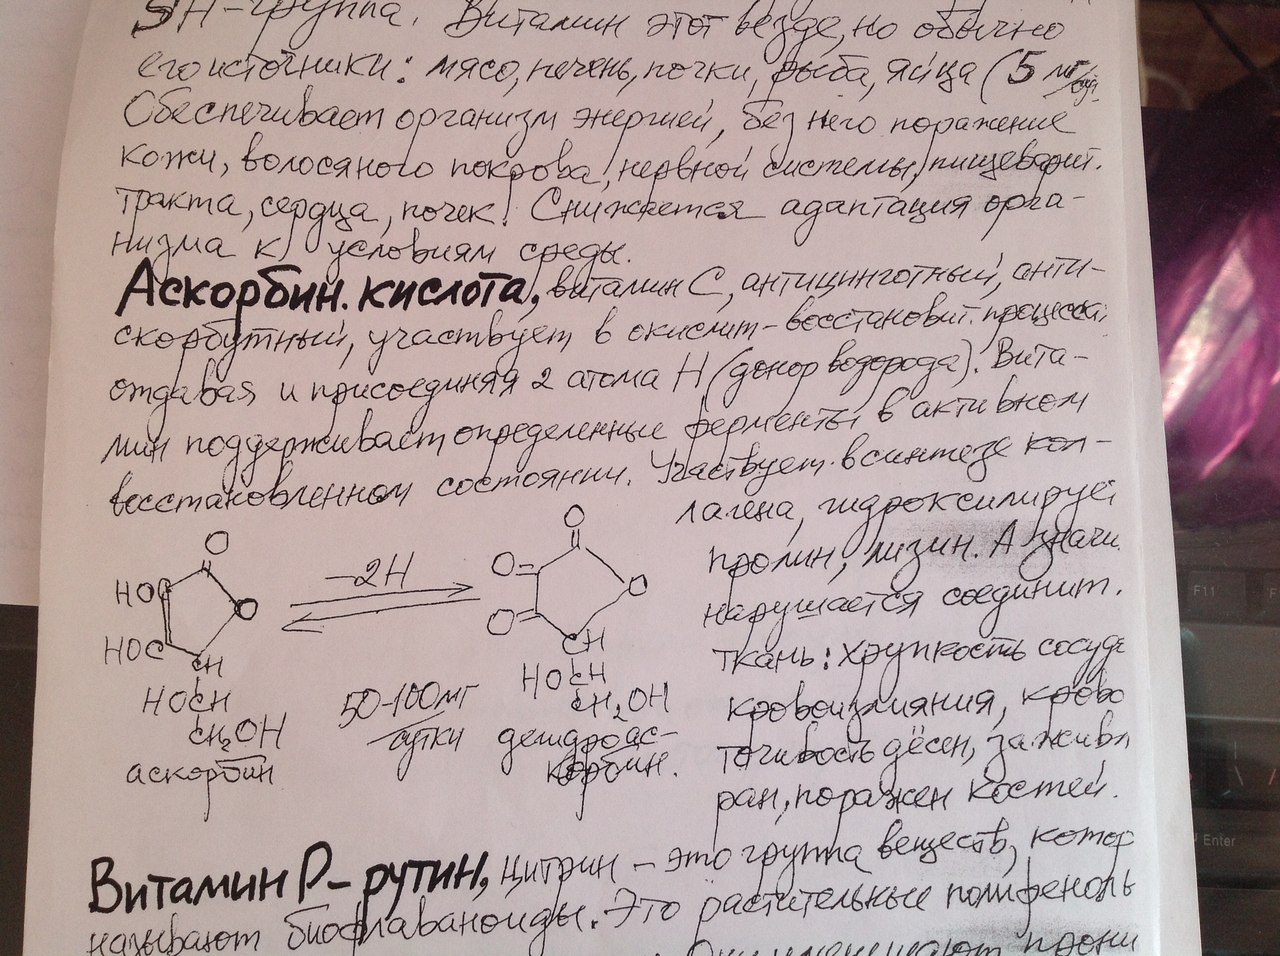 SH-группа. Витамин этот везде, но обычно
его источники: мясо, печень, почки, рыба, яйца (5 мг/сут.
Обеспечивает организм энергией, без него поражение
кожи, волосяного покрова, нервной системы, пищеварит.
тракта, сердца, почек! Снижается адаптация орга-
низма к условиям среды.
Аскорбин. кислота, витамин С, антицинготный, анти-
скорбутный, участвует в окислит-восстановит. процесса
отдавая и присоединяя 2 атома Н (донор водорода). Вита-
мин поддерживает определенные ферменты в активном
восстановленном состоянии. Участвует в синтезе кол-
лагена, гидроксилируе
пролин, лизин. А значи
нарушается соединит.
ткань: хрупкость сосуд
кровоизлияния, крово
точивость дёсен, заживл
ран, поражен костей.
O
HOC
O
HOC
CH
HOCH
CH2OH
аскорбин
-2H
50-100мг
сутки
O
O=
O
O=
CH
HOCH
CH2OH
дегидроас-
корбин.
Витамин Р- рутин, цитрин - это группа веществ, котор
называют биофлаваноиды. Это растительные полифенолы
Они уменьшают прони